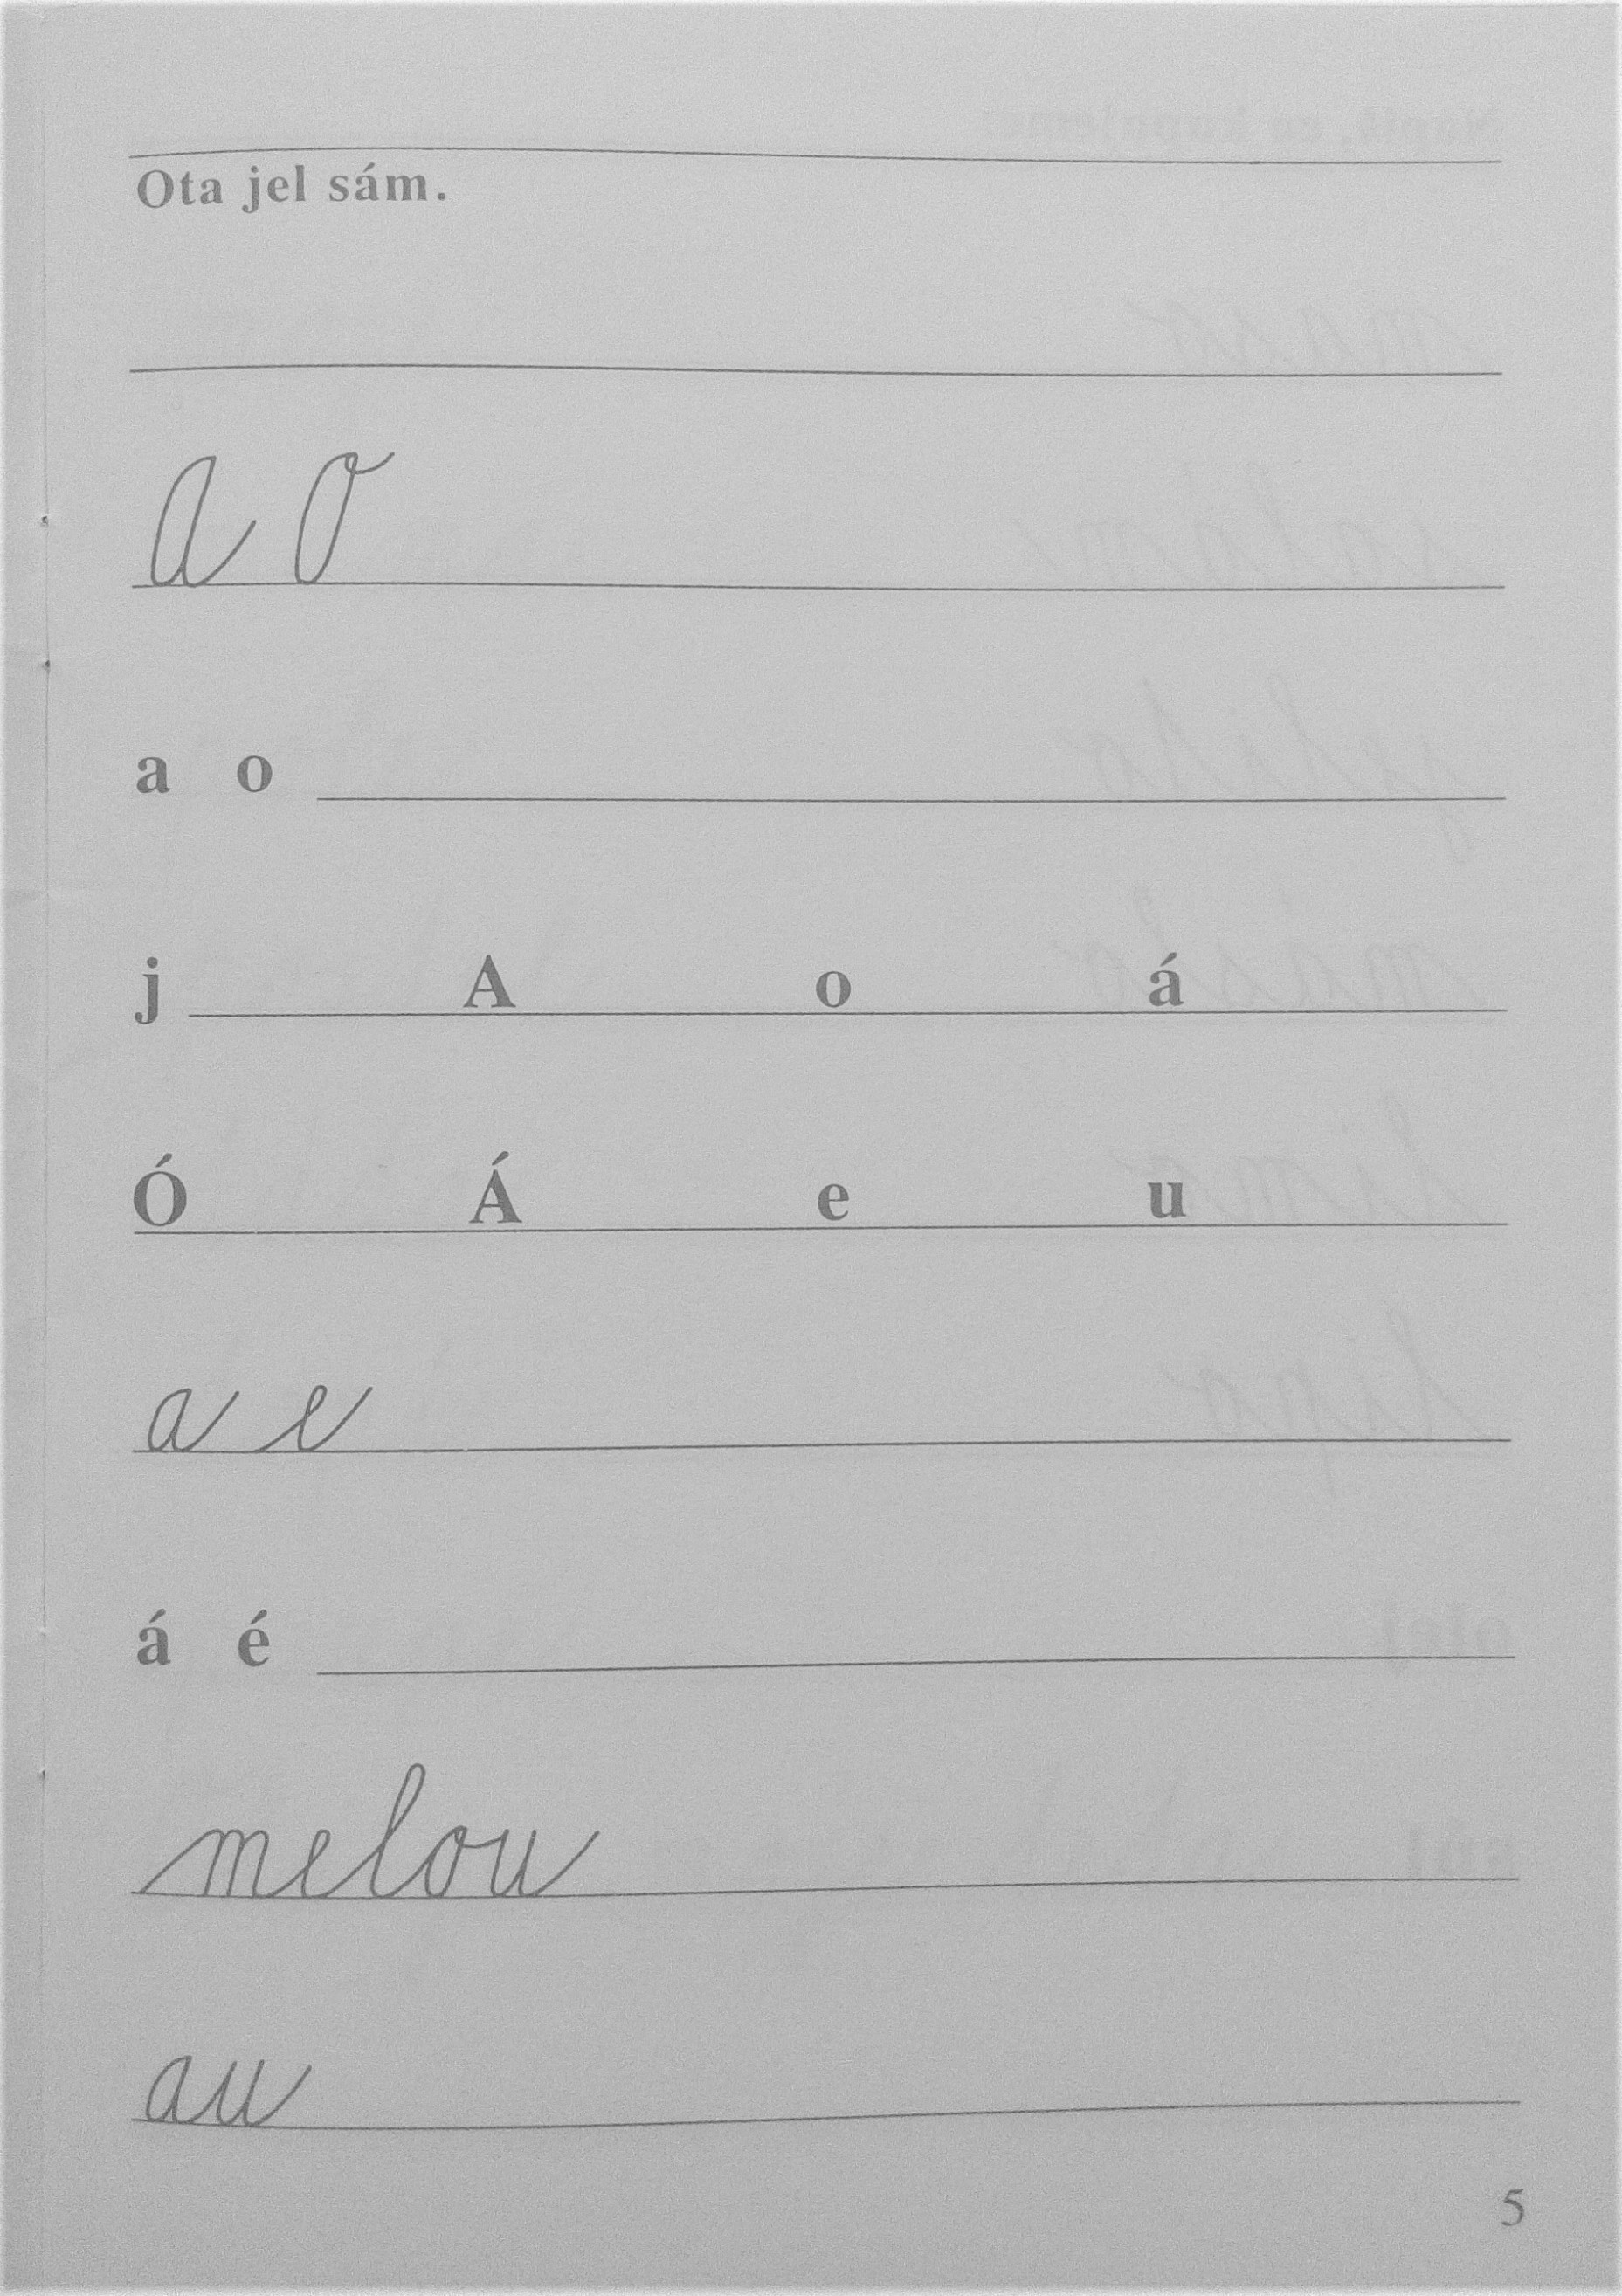 Ota jel sám.
A O
a o
j A o á
Ó Á e u
a e
á é
melou
au
5